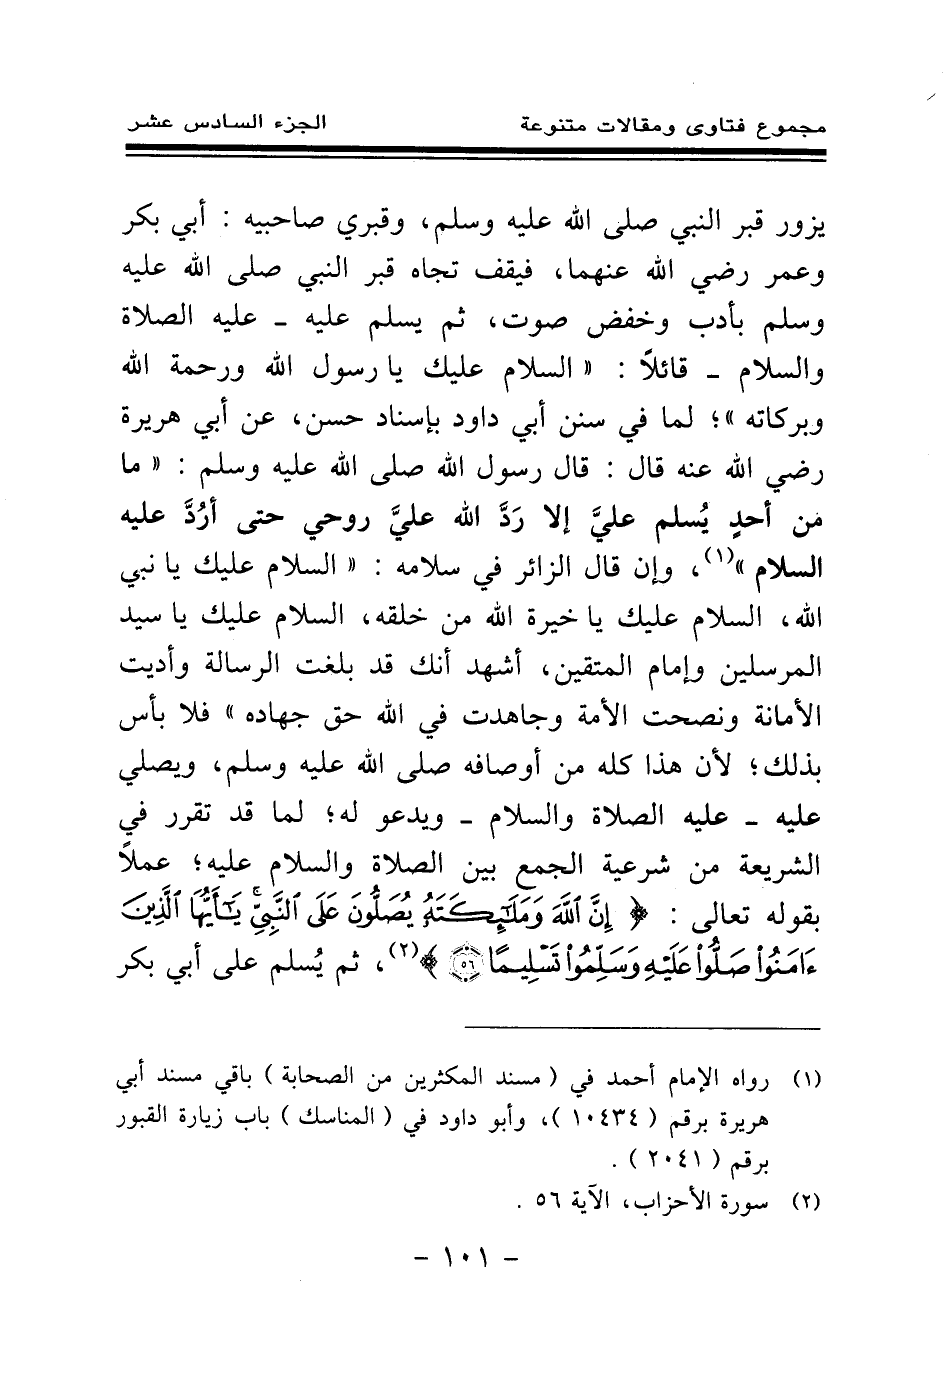 مجموع فتاوى ومقالات متنوعة الجزء السادس عشر
يزور قبر النبي صلى الله عليه وسلم، وقبري صاحبيه : أبي بكر
وعمر رضي الله عنهما، فيقف تجاه قبر النبي صلى الله عليه
وسلم بأدب وخفض صوت، ثم يسلم عليه ـ عليه الصلاة
والسلام ـ قائلاً : « السلام عليك يا رسول الله ورحمة الله
وبركاته »؛ لما في سنن أبي داود بإسناد حسن، عن أبي هريرة
رضي الله عنه قال : قال رسول الله صلى الله عليه وسلم : « ما
من أحدٍ يُسلم عليَّ إلا رَدَّ الله عليَّ روحي حتى أرُدَّ عليه
السلام »(١)، وإن قال الزائر في سلامه : « السلام عليك يا نبي
الله، السلام عليك يا خيرة الله من خلقه، السلام عليك يا سيد
المرسلين وإمام المتقين، أشهد أنك قد بلغت الرسالة وأديت
الأمانة ونصحت الأمة وجاهدت في الله حق جهاده » فلا بأس
بذلك؛ لأن هذا كله من أوصافه صلى الله عليه وسلم، ويصلي
عليه ـ عليه الصلاة والسلام ـ ويدعو له؛ لما قد تقرر في
الشريعة من شرعية الجمع بين الصلاة والسلام عليه؛ عملاً
بقوله تعالى : ﴿ إِنَّ ٱللَّهَ وَمَلَٰٓئِكَتَهُۥ يُصَلُّونَ عَلَى ٱلنَّبِيِّۚ يَٰٓأَيُّهَا ٱلَّذِينَ
ءَامَنُواْ صَلُّواْ عَلَيۡهِ وَسَلِّمُواْ تَسۡلِيمًا ٥٦ ﴾(٢)، ثم يُسلم على أبي بكر
(١) رواه الإمام أحمد في ( مسند المكثرين من الصحابة ) باقي مسند أبي
هريرة برقم ( ١٠٤٣٤ )، وأبو داود في ( المناسك ) باب زيارة القبور
برقم ( ٢٠٤١ ) .
(٢) سورة الأحزاب، الآية ٥٦ .
- ١٠١ -